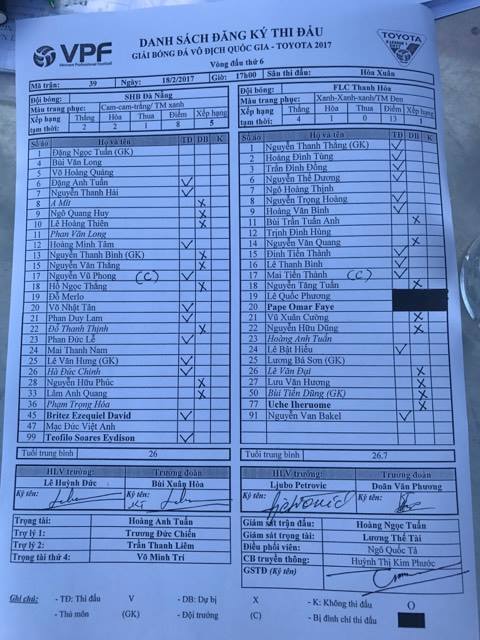 VPF
Vietnam Professional Football
DANH SÁCH ĐĂNG KÝ THI ĐẤU
GIẢI BÓNG ĐÁ VÔ ĐỊCH QUỐC GIA - TOYOTA 2017
Vòng đấu thứ 6
TOYOTA
Mã trận: 39 Ngày: 18/2/2017 Giờ: 17h00 Sân thi đấu: Hòa Xuân
Đội bóng: SHB Đà Nẵng
Màu trang phục: Cam-cam-trắng/ TM xanh
Xếp hạng tạm thời: Thắng Hòa Thua Điểm Xếp hạng
2 2 1 8 5
Số áo Họ và tên TĐ DB K
1 Đặng Ngọc Tuấn (GK)
4 Bùi Văn Long
5 Võ Hoàng Quảng
6 Đặng Anh Tuấn V
7 Nguyễn Thanh Hải V
8 A Mít X
9 Ngô Quang Huy X
10 Lê Hoàng Thiên X
11 Phan Văn Long
12 Hoàng Minh Tâm V
13 Nguyễn Thanh Bình (GK) X
15 Nguyễn Văn Thắng X
17 Nguyễn Vũ Phong (C) V
18 Hồ Ngọc Thắng X
19 Đỗ Merlo
20 Võ Nhật Tân V
21 Phan Duy Lam V
22 Đỗ Thanh Thịnh X
23 Phan Đức Lễ V
24 Mai Thanh Nam
25 Lê Văn Hưng (GK) V
26 Hà Đức Chinh V
28 Nguyễn Hữu Phúc X
33 Lâm Anh Quang X
36 Phạm Trọng Hóa
45 Britez Ezequiel David V
47 Mạc Đức Việt Anh
99 Teofilo Soares Eydison V
Tuổi trung bình 26
HLV trưởng Trưởng đoàn
Lê Huỳnh Đức Bùi Xuân Hòa
Ký tên: Ký tên:
Trọng tài: Hoàng Anh Tuấn
Trợ lý 1: Trương Đức Chiến
Trợ lý 2: Trần Thanh Liêm
Trọng tài thứ 4: Võ Minh Trí
Đội bóng: FLC Thanh Hóa
Màu trang phục: Xanh-Xanh-xanh/TM Đen
Xếp hạng tạm thời: Thắng Hòa Thua Điểm Xếp hạng
4 1 0 13 1
Số áo Họ và tên TĐ DB K
1 Nguyễn Thanh Thắng (GK) V
2 Hoàng Đình Tùng V
3 Trần Đình Đồng V
6 Nguyễn Thế Dương V
7 Ngô Hoàng Thịnh
8 Nguyễn Trọng Hoàng V
9 Hoàng Văn Bình V
11 Bùi Trần Tuấn Anh X
12 Trịnh Đình Hùng
14 Nguyễn Văn Quang X
15 Đinh Tiến Thành V
16 Lê Thanh Bình V
17 Mai Tiến Thành (C) V
18 Nguyễn Tăng Tuấn X
19 Lê Quốc Phương
20 Pape Omar Faye
21 Vũ Xuân Cường X
22 Nguyễn Hữu Dũng X
23 Hoàng Anh Tuấn
24 Lê Bật Hiếu V
25 Lương Bá Sơn (GK)
26 Lê Văn Đại X
27 Lưu Văn Hương X
50 Bùi Tiến Dũng (GK) X
77 Uche Iheruome X
91 Nguyễn Van Bakel V
Tuổi trung bình 26.7
HLV trưởng Trưởng đoàn
Ljubo Petrovic Doãn Văn Phương
Ký tên: Ký tên:
Giám sát trận đấu: Hoàng Ngọc Tuấn
Giám sát trọng tài: Lương Thế Tài
Điều phối viên: Ngô Quốc Tả
CB truyền thông Huỳnh Thị Kim Phước
GSTĐ (Ký tên)
Ghi chú: - TĐ: Thi đấu V - DB: Dự bị X - K: Không thi đấu O
- Thủ môn (GK) - Đội trưởng (C) - Bị đình chỉ thi đấu